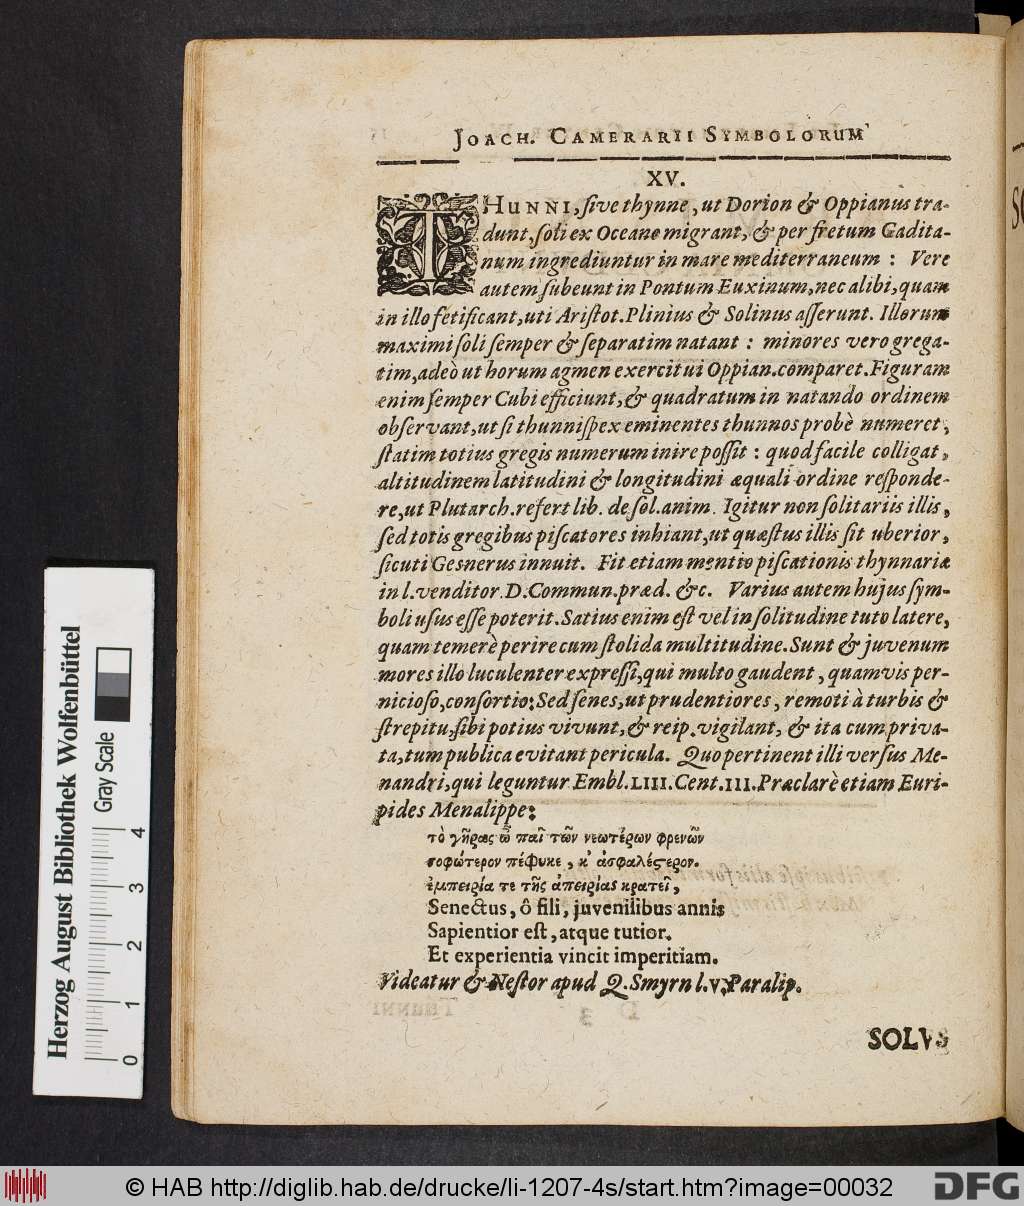 JOACH. CAMERARII SYMBOLORUM
XV.
THUNNI, ſive thynne, ut Dorion & Oppianus tra-
dunt, ſoli ex Oceano migrant, & per fretum Gadita-
num ingrediuntur in mare mediterraneum : Vere
autem ſubeunt in Pontum Euxinum, nec alibi, quam
in illo fetificant, uti Ariſtot. Plinius & Solinus aſſerunt. Illorum
maximi ſoli ſemper & ſeparatim natant : minores vero grega-
tim, adeò ut horum agmen exercitui Oppian. comparet. Figuram
enim ſemper Cubi efficiunt, & quadratum in natando ordinem
obſervant, ut ſi thunniſpex eminentes thunnos probè numeret,
ſtatim totius gregis numerum inire poſſit : quod facile colligat,
altitudinem latitudini & longitudini æquali ordine reſponde-
re, ut Plutarch. refert lib. de ſol. anim. Igitur non ſolitariis illis,
ſed totis gregibus piſcatores inhiant, ut quæſtus illis ſit uberior,
ſicuti Gesnerus innuit. Fit etiam mentio piſcationis thynnariæ
in l. venditor. D. Commun. præd. &c. Varius autem hujus ſym-
boli uſus eſſe poterit. Satius enim eſt vel in ſolitudine tuto latere,
quam temerè perire cum ſtolida multitudine. Sunt & juvenum
mores illo luculenter expreſſi, qui multo gaudent, quamvis per-
nicioſo, conſortio: Sed ſenes, ut prudentiores, remoti à turbis &
ſtrepitu, ſibi potius vivunt, & reip. vigilant, & ita cum priva-
ta, tum publica evitant pericula. Quo pertinent illi verſus Me-
nandri, qui leguntur Embl. LIII. Cent. III. Præclarè etiam Euri-
pides Menalippe:
τὸ γῆρας ὦ παῖ τῶν νεωτέρων φρενῶν
σοφώτερον πέφυκε, κ' ἀσφαλέςερον.
ἐμπειρία τε τῆς ἀπειρίας κρατεῖ,
Senectus, ô fili, juvenilibus annis
Sapientior eſt, atque tutior.
Et experientia vincit imperitiam.
Videatur & Neſtor apud Q. Smyrn l. v. Paralip.
SOLVS
Herzog August Bibliothek Wolfenbüttel
Gray Scale
0 1 2 3 4
© HAB http://diglib.hab.de/drucke/li-1207-4s/start.htm?image=00032
DFG